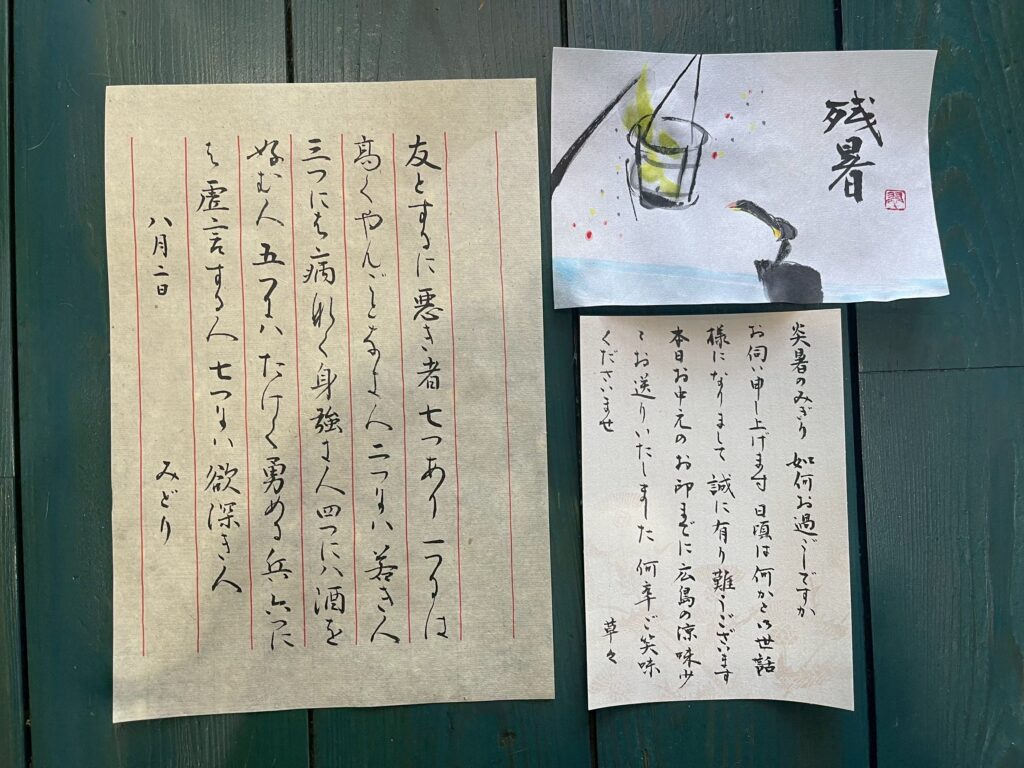 友とするに悪き者七つあり一つには
高くやんごとなき人二つには若き人
三つには病なく身強き人四つには酒を
好む人 五つには たけく勇める兵 六つに
は虚言する人 七つには欲深き人
八月二日
みどり
残暑
炎暑のみぎり 如何お過ごしですか
お伺い申し上げます 日頃は何かと御世話
様になりまして 誠に有り難うございます
本日お中元のお印までに広島の涼味少
々お送りいたしました 何卒ご笑味
くださいませ
草々